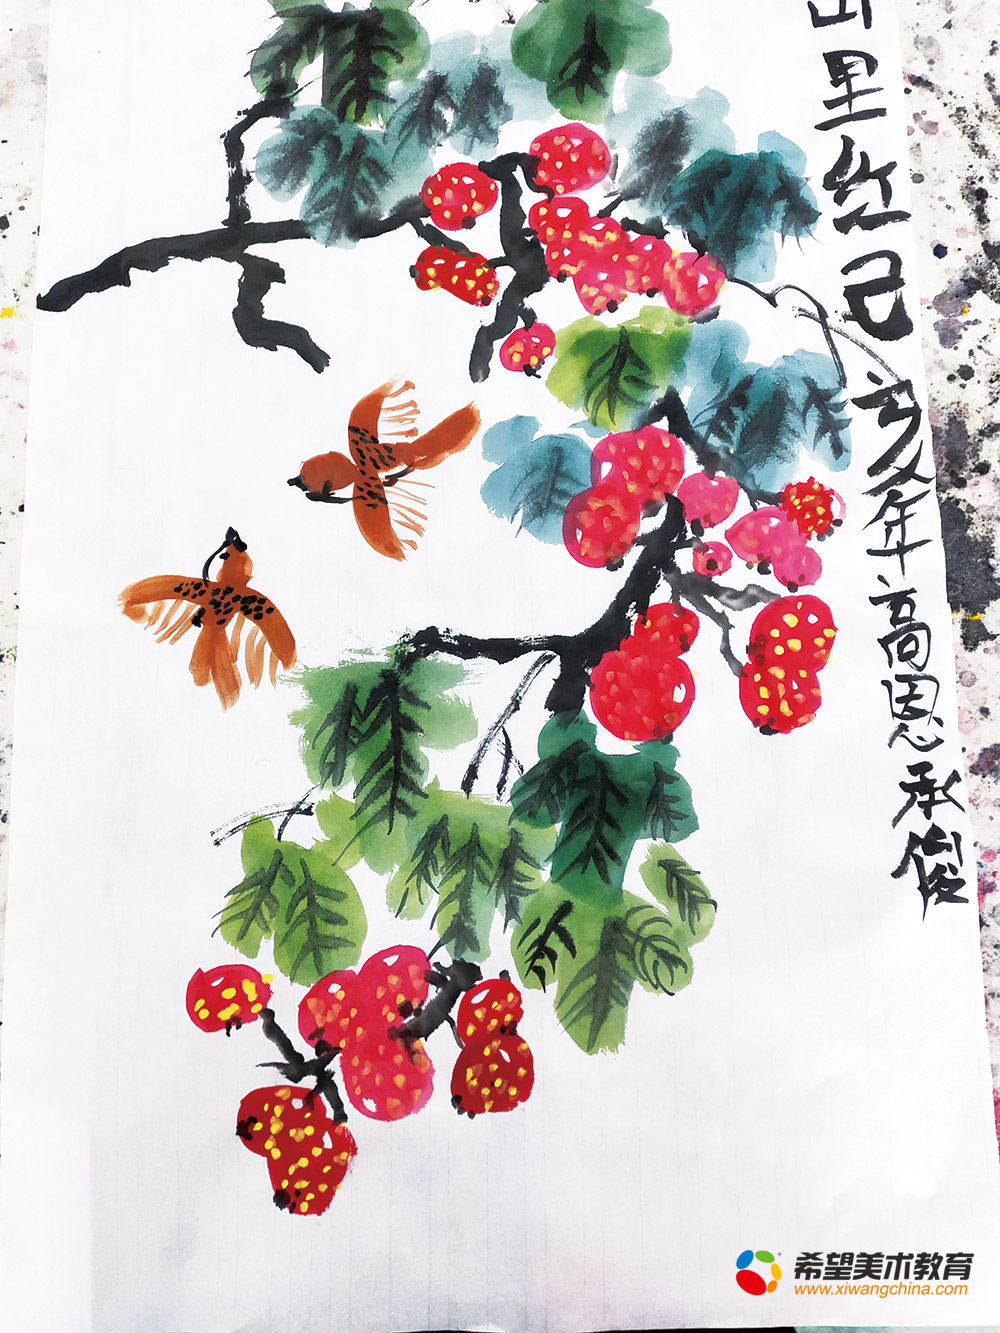 山里红己亥年高恩承俊
希望美术教育
www.xiwangchina.com